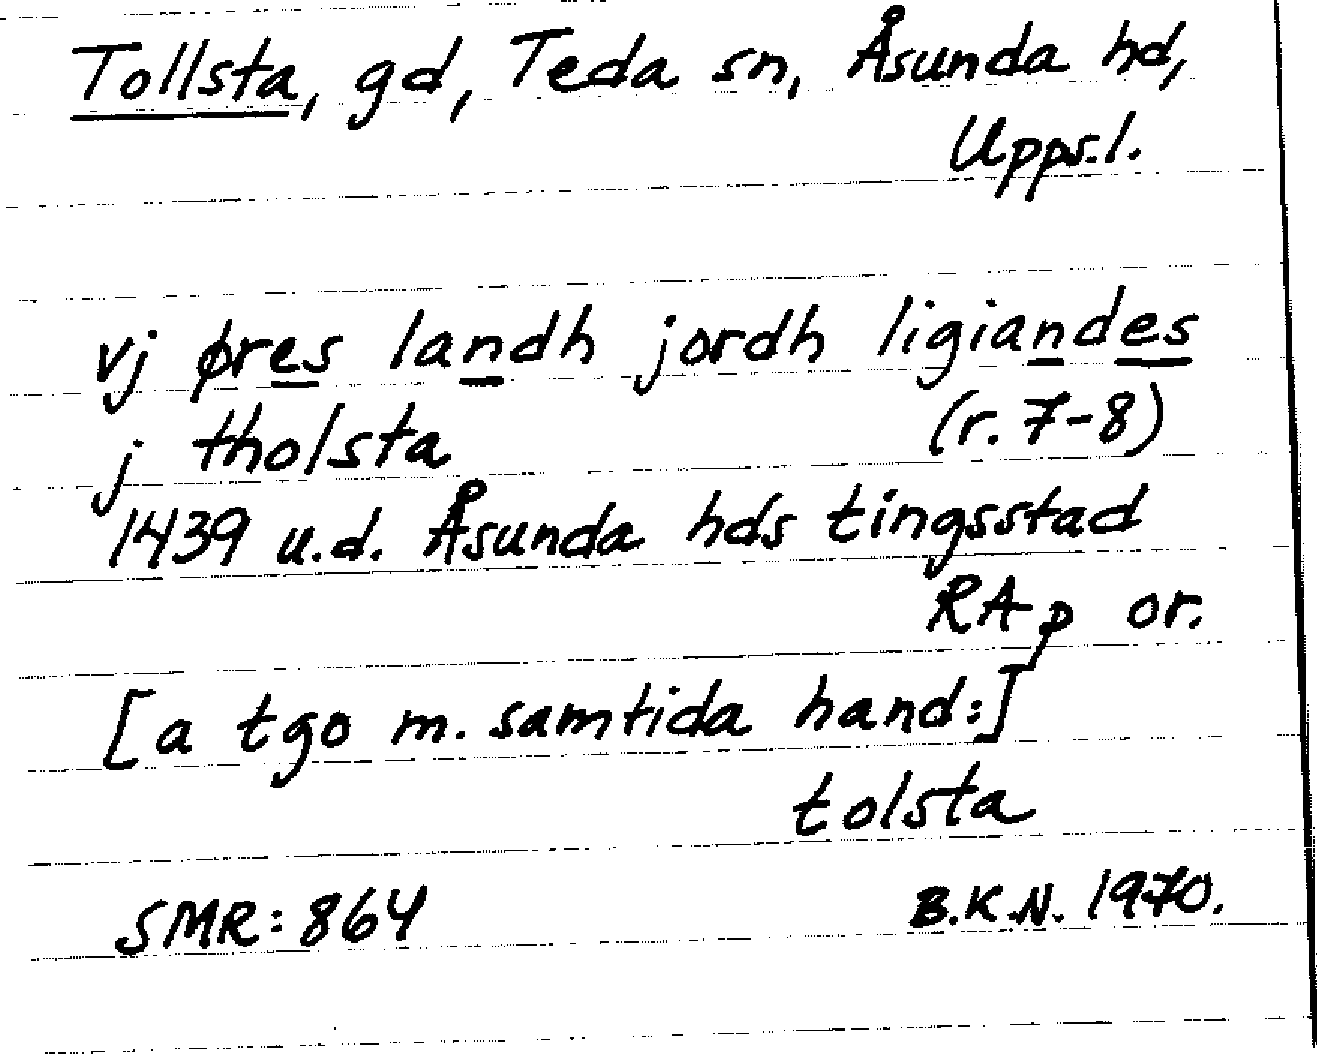 Tollsta, gd, Teda sn, Åsunda hd,
Upps.l.
vj øres landh jordh ligiandes
j tholsta (r. 7-8)
1439 u.d. Åsunda hds tingsstad
RAp or.
[a tgo m. samtida hand:]
tolsta
SMR: 864 B.K.N. 1970.